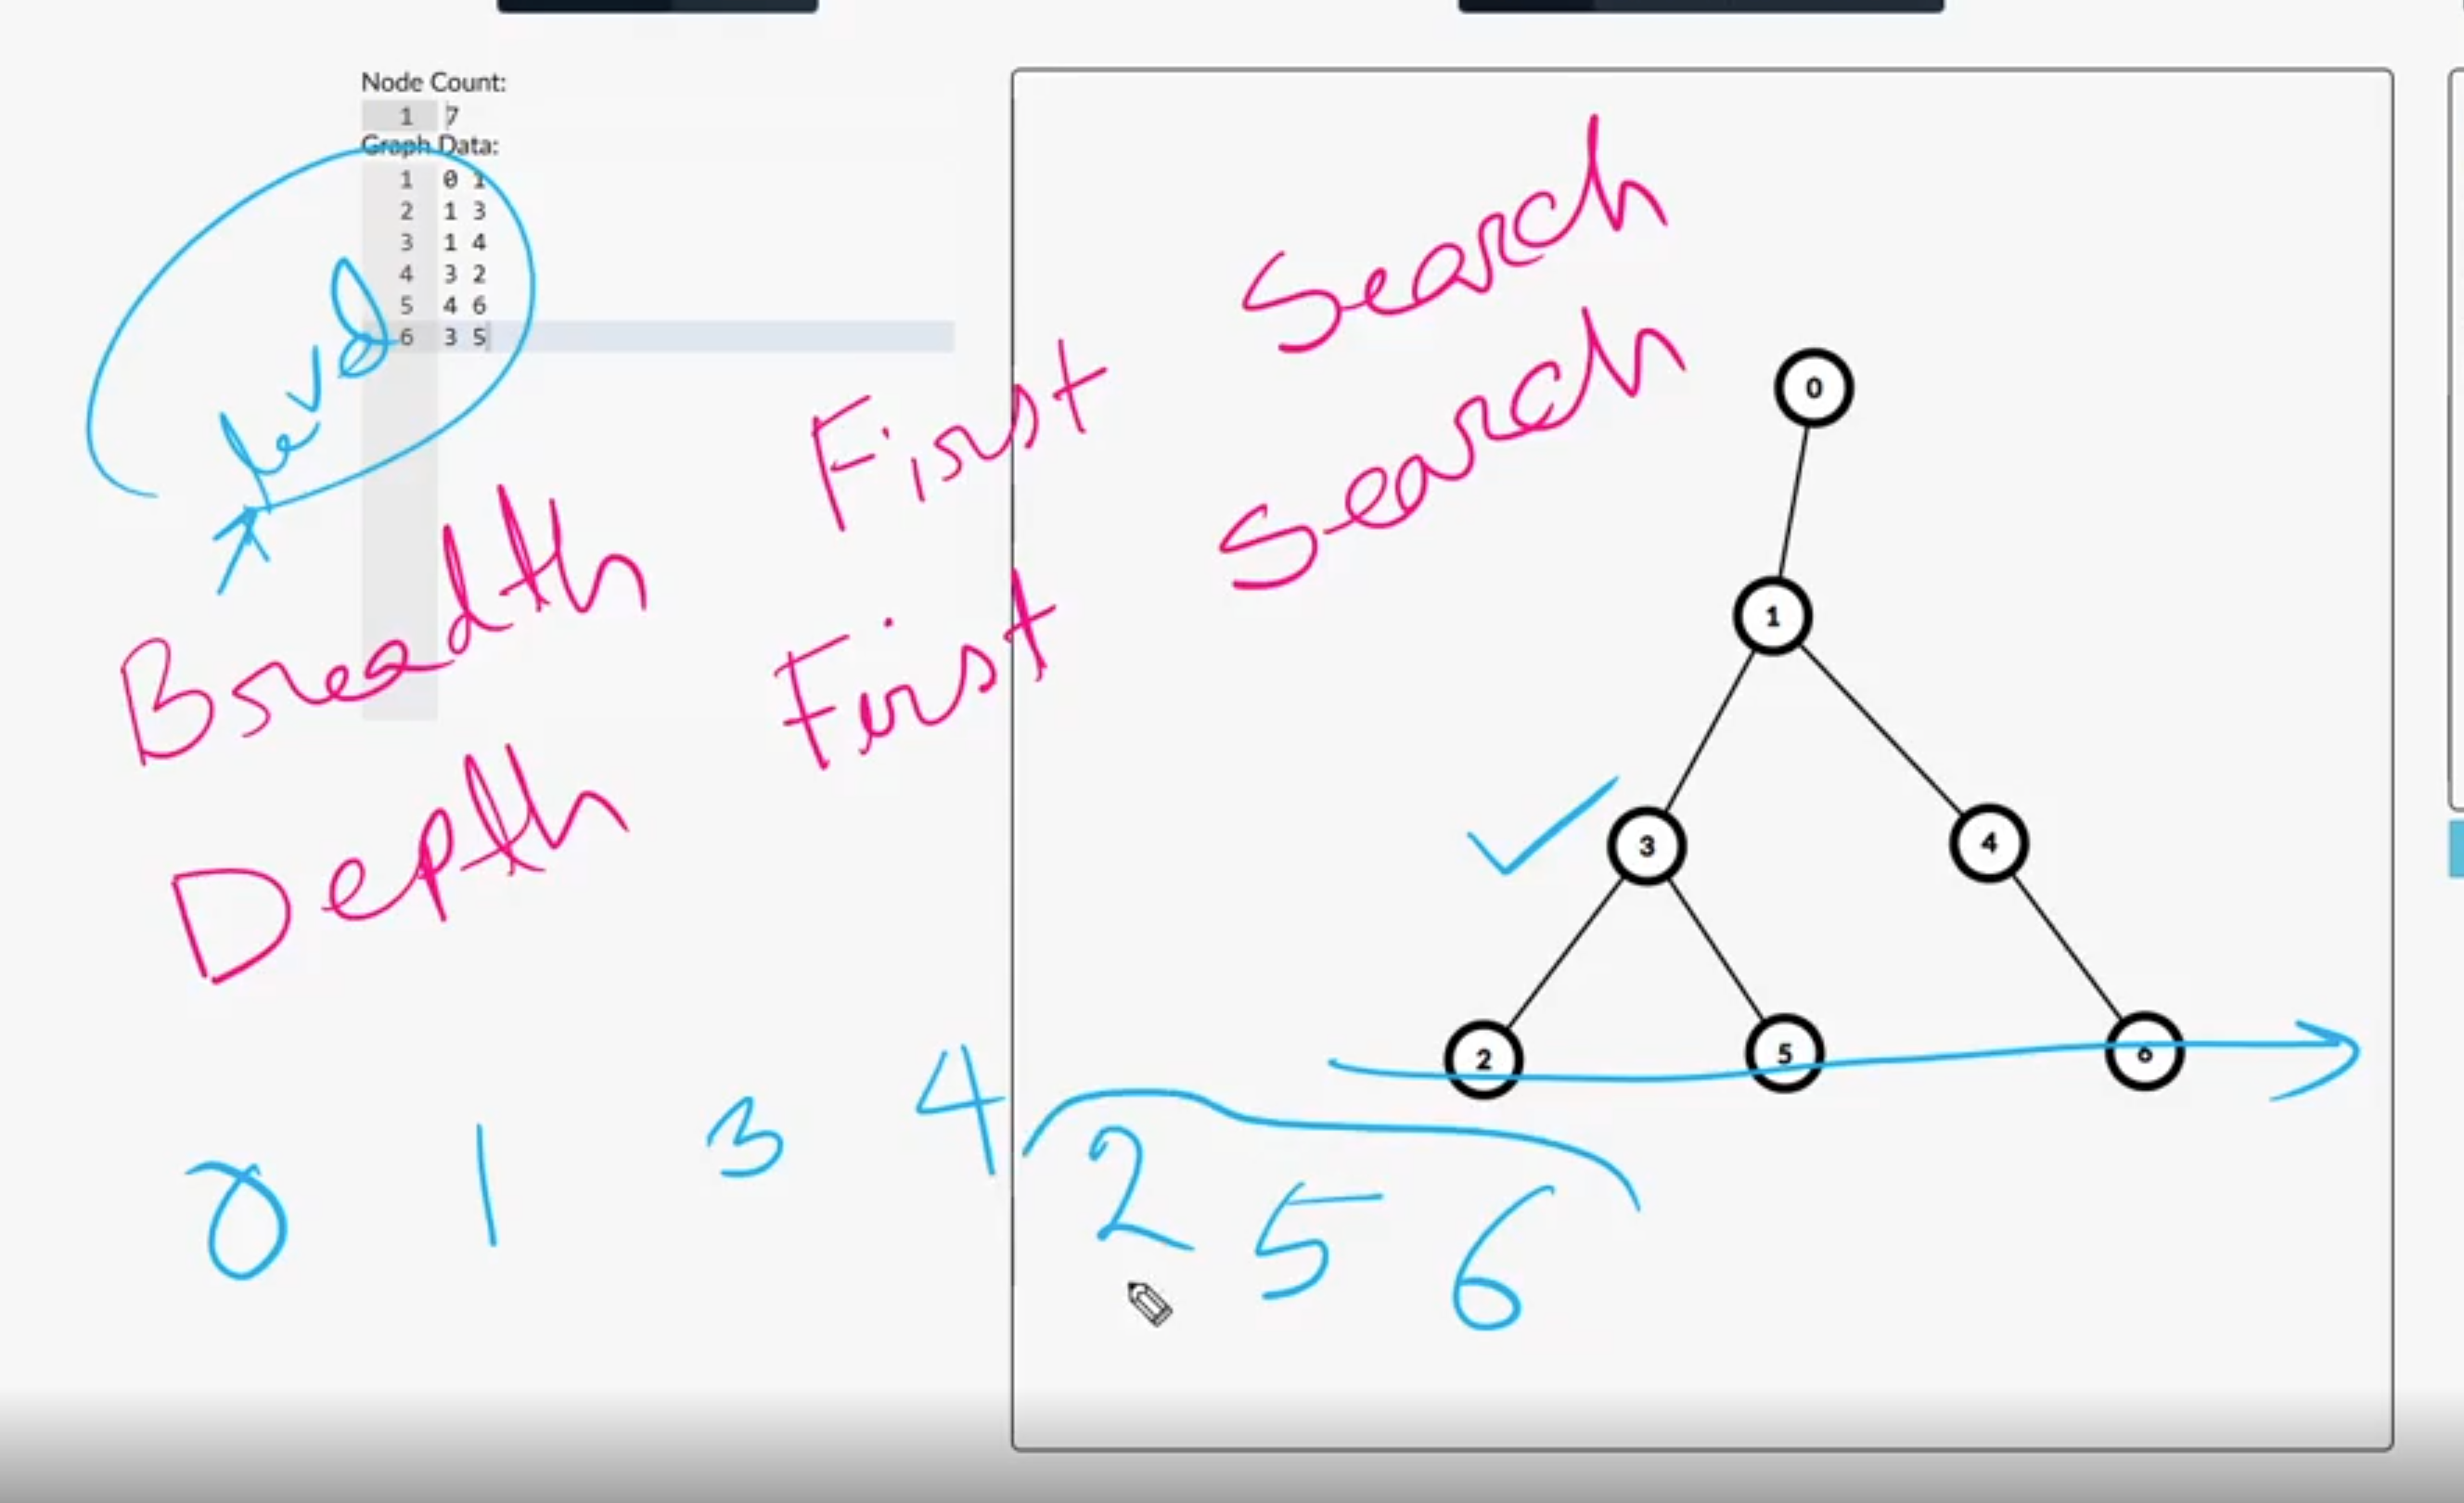 Node Count:
1 7
Graph Data:
1 0 1
2 1 3
3 1 4
4 3 2
5 4 6
6 3 5
level
Breadth First Search
Depth First Search
0
1
3 4
2 5 6
0 1 3 4 2 5 6